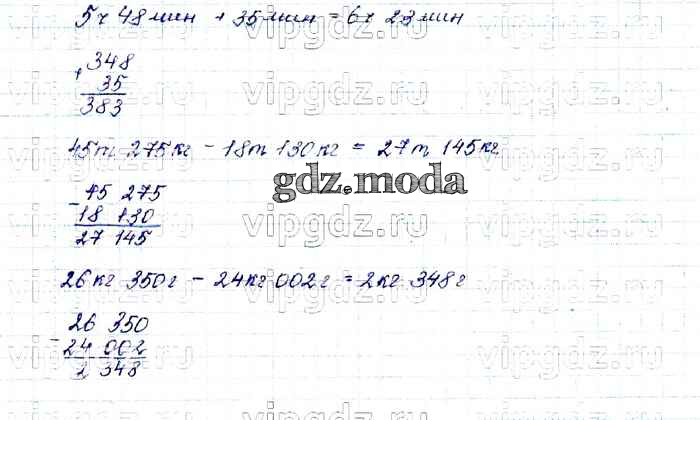 5ч 48мин + 35мин = 6ч 23мин
+ 348
35
383
45т 275кг - 18т 130кг = 27т 145кг
gdz.moda
- 45 275
18 130
27 145
26кг 350г - 24кг 002г = 2кг 348г
- 26 350
24 002
2 348
vipgdz.ru